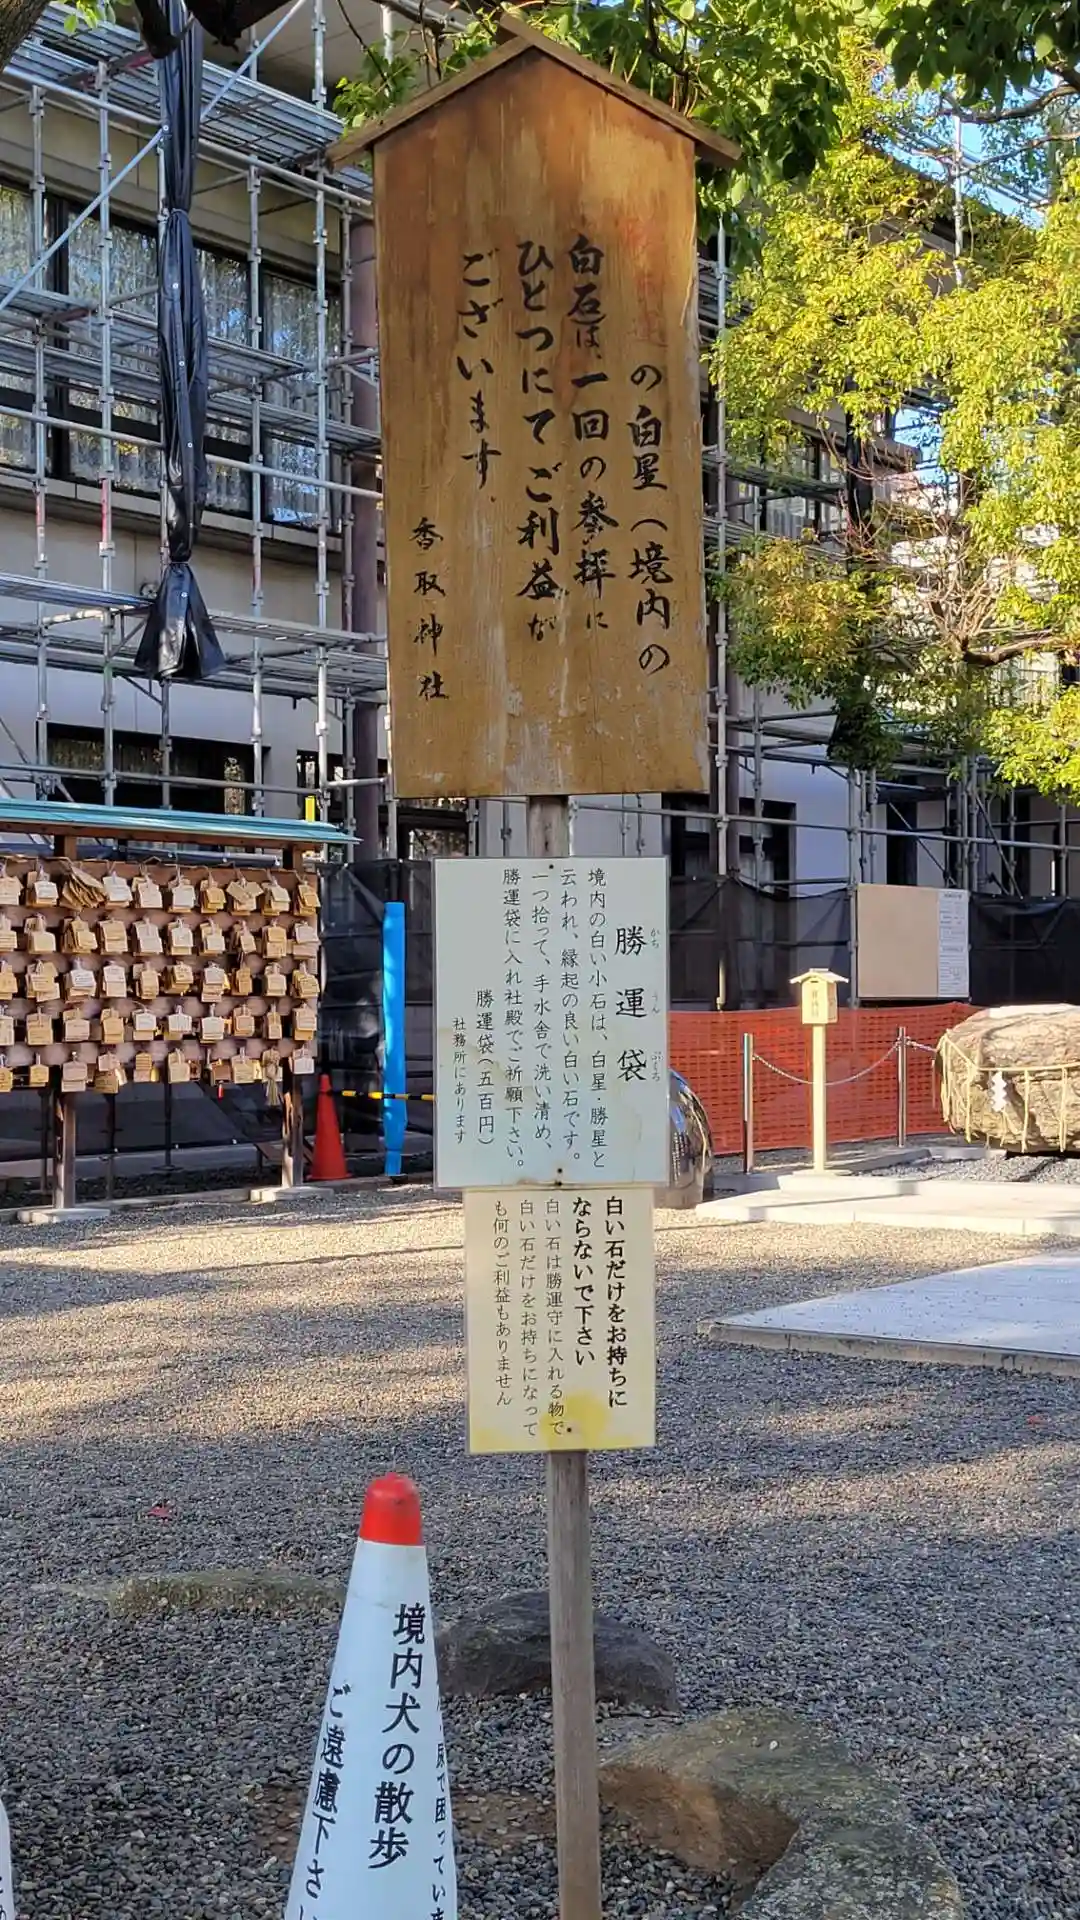 の白星(境内の
白石は、一回の参拝に
ひとつにてご利益が
ございます。
香取神社
勝運袋
かち うん ぶくろ
境内の白い小石は、白星・勝星と
云われ、縁起の良い白い石です。
一つ拾って、手水舎で洗い清め、
勝運袋に入れ社殿でご祈願下さい。
勝運袋(五百円)
社務所にあります
白い石だけをお持ちに
ならないで下さい
白い石は勝運守に入れる物で
白い石だけをお持ちになって
も何のご利益もありません
尿で困っていま
境内犬の散歩
ご遠慮下さい